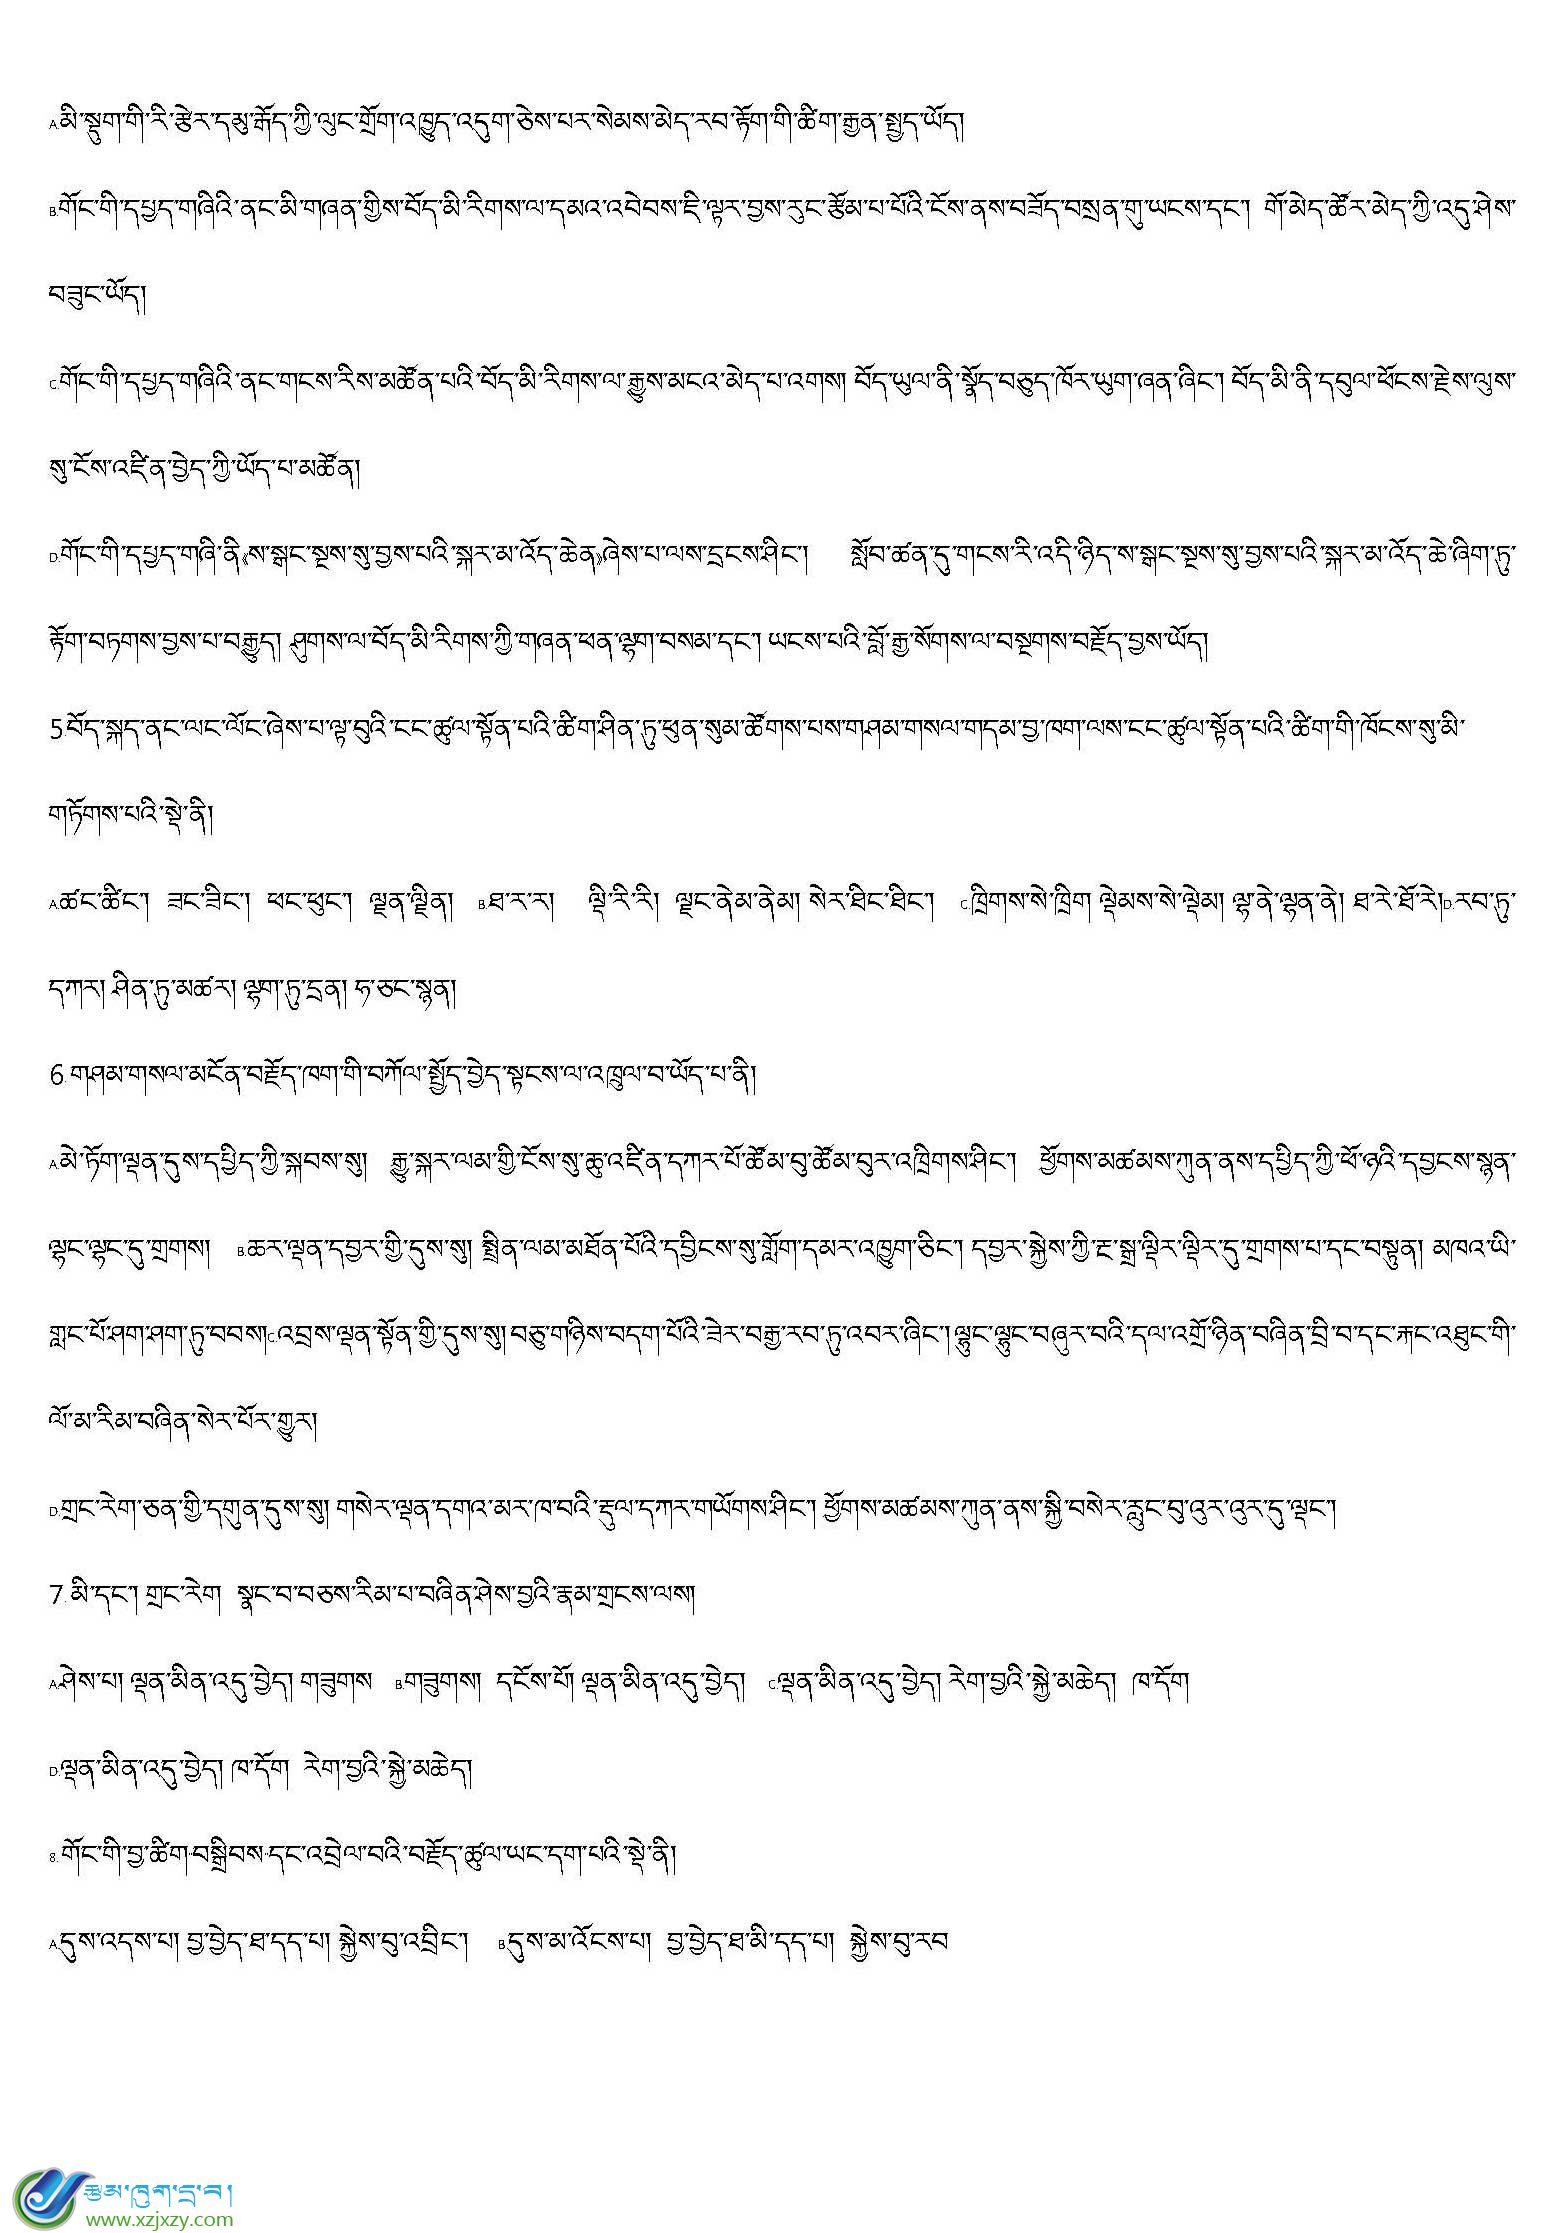 A.མི་སྡུག་གི་རི་རྩེར་དམུ་རྒོད་ཀྱི་ལུང་གྲོག་འཁྱུད་འདུག་ཅེས་པར་སེམས་མེད་རབ་རྟོག་གི་ཚིག་རྒྱན་སྤྱད་ཡོད།
B.གོང་གི་དཔྱད་གཞིའི་ནང་མི་གཞན་གྱིས་བོད་མི་རིགས་ལ་དམའ་འབེབས་ཇི་ལྟར་བྱས་རུང་རྩོམ་པ་པོའི་ངོས་ནས་བཟོད་བསྲན་གུ་ཡངས་དང་། གོ་མེད་ཚོར་མེད་ཀྱི་འདུ་ཤེས་
བཟུང་ཡོད།
C.གོང་གི་དཔྱད་གཞིའི་ནང་གངས་རིས་མཚོན་པའི་བོད་མི་རིགས་ལ་རྒྱུས་མངའ་མེད་པ་འགས། བོད་ཡུལ་ནི་སྣོད་བཅུད་ཁོར་ཡུག་ཞན་ཞིང་། བོད་མི་ནི་དབུལ་ཕོངས་རྗེས་ལུས་
སུ་ངོས་འཛིན་བྱེད་ཀྱི་ཡོད་པ་མཚོན།
D.གོང་གི་དཔྱད་གཞི་ནི《ས་སྒང་སྔས་སུ་བྱས་པའི་སྐར་མ་འོད་ཆེན》ཞེས་པ་ལས་དྲངས་ཤིང་། སློབ་ཚན་དུ་གངས་རི་འདི་ཉིད་ས་སྒང་སྔས་སུ་བྱས་པའི་སྐར་མ་འོད་ཆེ་ཞིག་ཏུ་
རྟོག་བཏགས་བྱས་པ་བརྒྱུད། ཤུགས་ལ་བོད་མི་རིགས་ཀྱི་གཞན་ཕན་ལྷག་བསམ་དང་། ཡངས་པའི་བློ་རྒྱ་སོགས་ལ་བསྔགས་བརྗོད་བྱས་ཡོད།
5.བོད་སྐད་ནང་ལང་ལོང་ཞེས་པ་ལྟ་བུའི་ངང་ཚུལ་སྟོན་པའི་ཚིག་ཤིན་ཏུ་ཕུན་སུམ་ཚོགས་པས་གཤམ་གསལ་གདམ་བྱ་ཁག་ལས་ངང་ཚུལ་སྟོན་པའི་ཚིག་གི་ཁོངས་སུ་མི་
གཏོགས་པའི་སྡེ་ནི།
A.ཚང་ཚིང་། ཟང་ཟིང་། ཕང་ཕུང་། ལྔན་ལྔིན། B.ཐ་ར་ར། ལྡི་རི་རི། ལྗང་ནེམ་ནེམ། སེར་ཐིང་ཐིང་། C.ཁྲིགས་སེ་ཁྲིག ལྡེམས་སེ་ལྡེམ། ལྷ་ནེ་ལྷན་ནེ། ཐ་རེ་ཐོ་རེ། D.རབ་ཏུ་
དཀར། ཤིན་ཏུ་མཚར། ལྷག་ཏུ་དྲན། ཧ་ཅང་སྙན།
6.གཤམ་གསལ་མངོན་བརྗོད་ཁག་གི་བཀོལ་སྤྱོད་བྱེད་སྟངས་ལ་འཁྲུལ་བ་ཡོད་པ་ནི།
A.མེ་ཏོག་ལྡན་དུས་དཔྱིད་ཀྱི་སྐབས་སུ། རྒྱུ་སྐར་ལམ་གྱི་ངོས་སུ་ཆུ་འཛིན་དཀར་པོ་ཚོམ་བུ་ཚོམ་བུར་འཁྲིགས་ཤིང་། ཕྱོགས་མཚམས་ཀུན་ནས་དཔྱིད་ཀྱི་ཕོ་ཉའི་དབྱངས་སྙན་
ལྷང་ལྷང་དུ་གྲགས། B.ཆར་ལྡན་དབྱར་གྱི་དུས་སུ། སྤྲིན་ལམ་མཐོན་པོའི་དབྱིངས་སུ་གློག་དམར་འཁྱུག་ཅིང་། དབྱར་སྐྱེས་ཀྱི་རྔ་སྒྲ་ལྡིར་ལྡིར་དུ་གྲགས་པ་དང་བསྟུན། མཁའ་ཡི་
གླང་པོ་ཤག་ཤག་ཏུ་བབས། C.འབྲས་ལྡན་སྟོན་གྱི་དུས་སུ། བཅུ་གཉིས་བདག་པོའི་ཟེར་བརྒྱ་རབ་ཏུ་འབར་ཞིང་། ལྷུང་ལྷུང་བཞུར་བའི་དལ་འགྲོ་ཉིན་བཞིན་བྲི་བ་དང་རྐང་འཐུང་གི་
ལོ་མ་རིམ་བཞིན་སེར་པོར་གྱུར།
D.གྲང་རེག་ཅན་གྱི་དགུན་དུས་སུ། གསེར་ལྡན་དགའ་མར་ཁ་བའི་རྡུལ་དཀར་གཡོགས་ཤིང་། ཕྱོགས་མཚམས་ཀུན་ནས་སྐྱི་བསེར་རླུང་བུ་འུར་འུར་དུ་ལྡང་།
7.མི་དང་། གྲང་རེག སྣང་བ་བཅས་རིམ་པ་བཞིན་ཤེས་བྱའི་རྣམ་གྲངས་ལས།
A.ཤེས་པ། ལྡན་མིན་འདུ་བྱེད། གཟུགས B.གཟུགས། དངོས་པོ། ལྡན་མིན་འདུ་བྱེད། C.ལྡན་མིན་འདུ་བྱེད། རེག་བྱའི་སྐྱེ་མཆེད། ཁ་དོག
D.ལྡན་མིན་འདུ་བྱེད། ཁ་དོག རེག་བྱའི་སྐྱེ་མཆེད།
8.གོང་གི་བྱ་ཚིག་བསྒྲིབས་དང་འབྲེལ་བའི་བརྗོད་ཚུལ་ཡང་དག་པའི་སྡེ་ནི།
A.དུས་འདས་པ། བྱ་བྱེད་ཐ་དད་པ། སྐྱེས་བུ་འབྲིང་། B.དུས་མ་འོངས་པ། བྱ་བྱེད་ཐ་མི་དད་པ། སྐྱེས་བུ་རབ
རྩམ་ཁུག་དྲ་བ།
www.xzjxzy.com